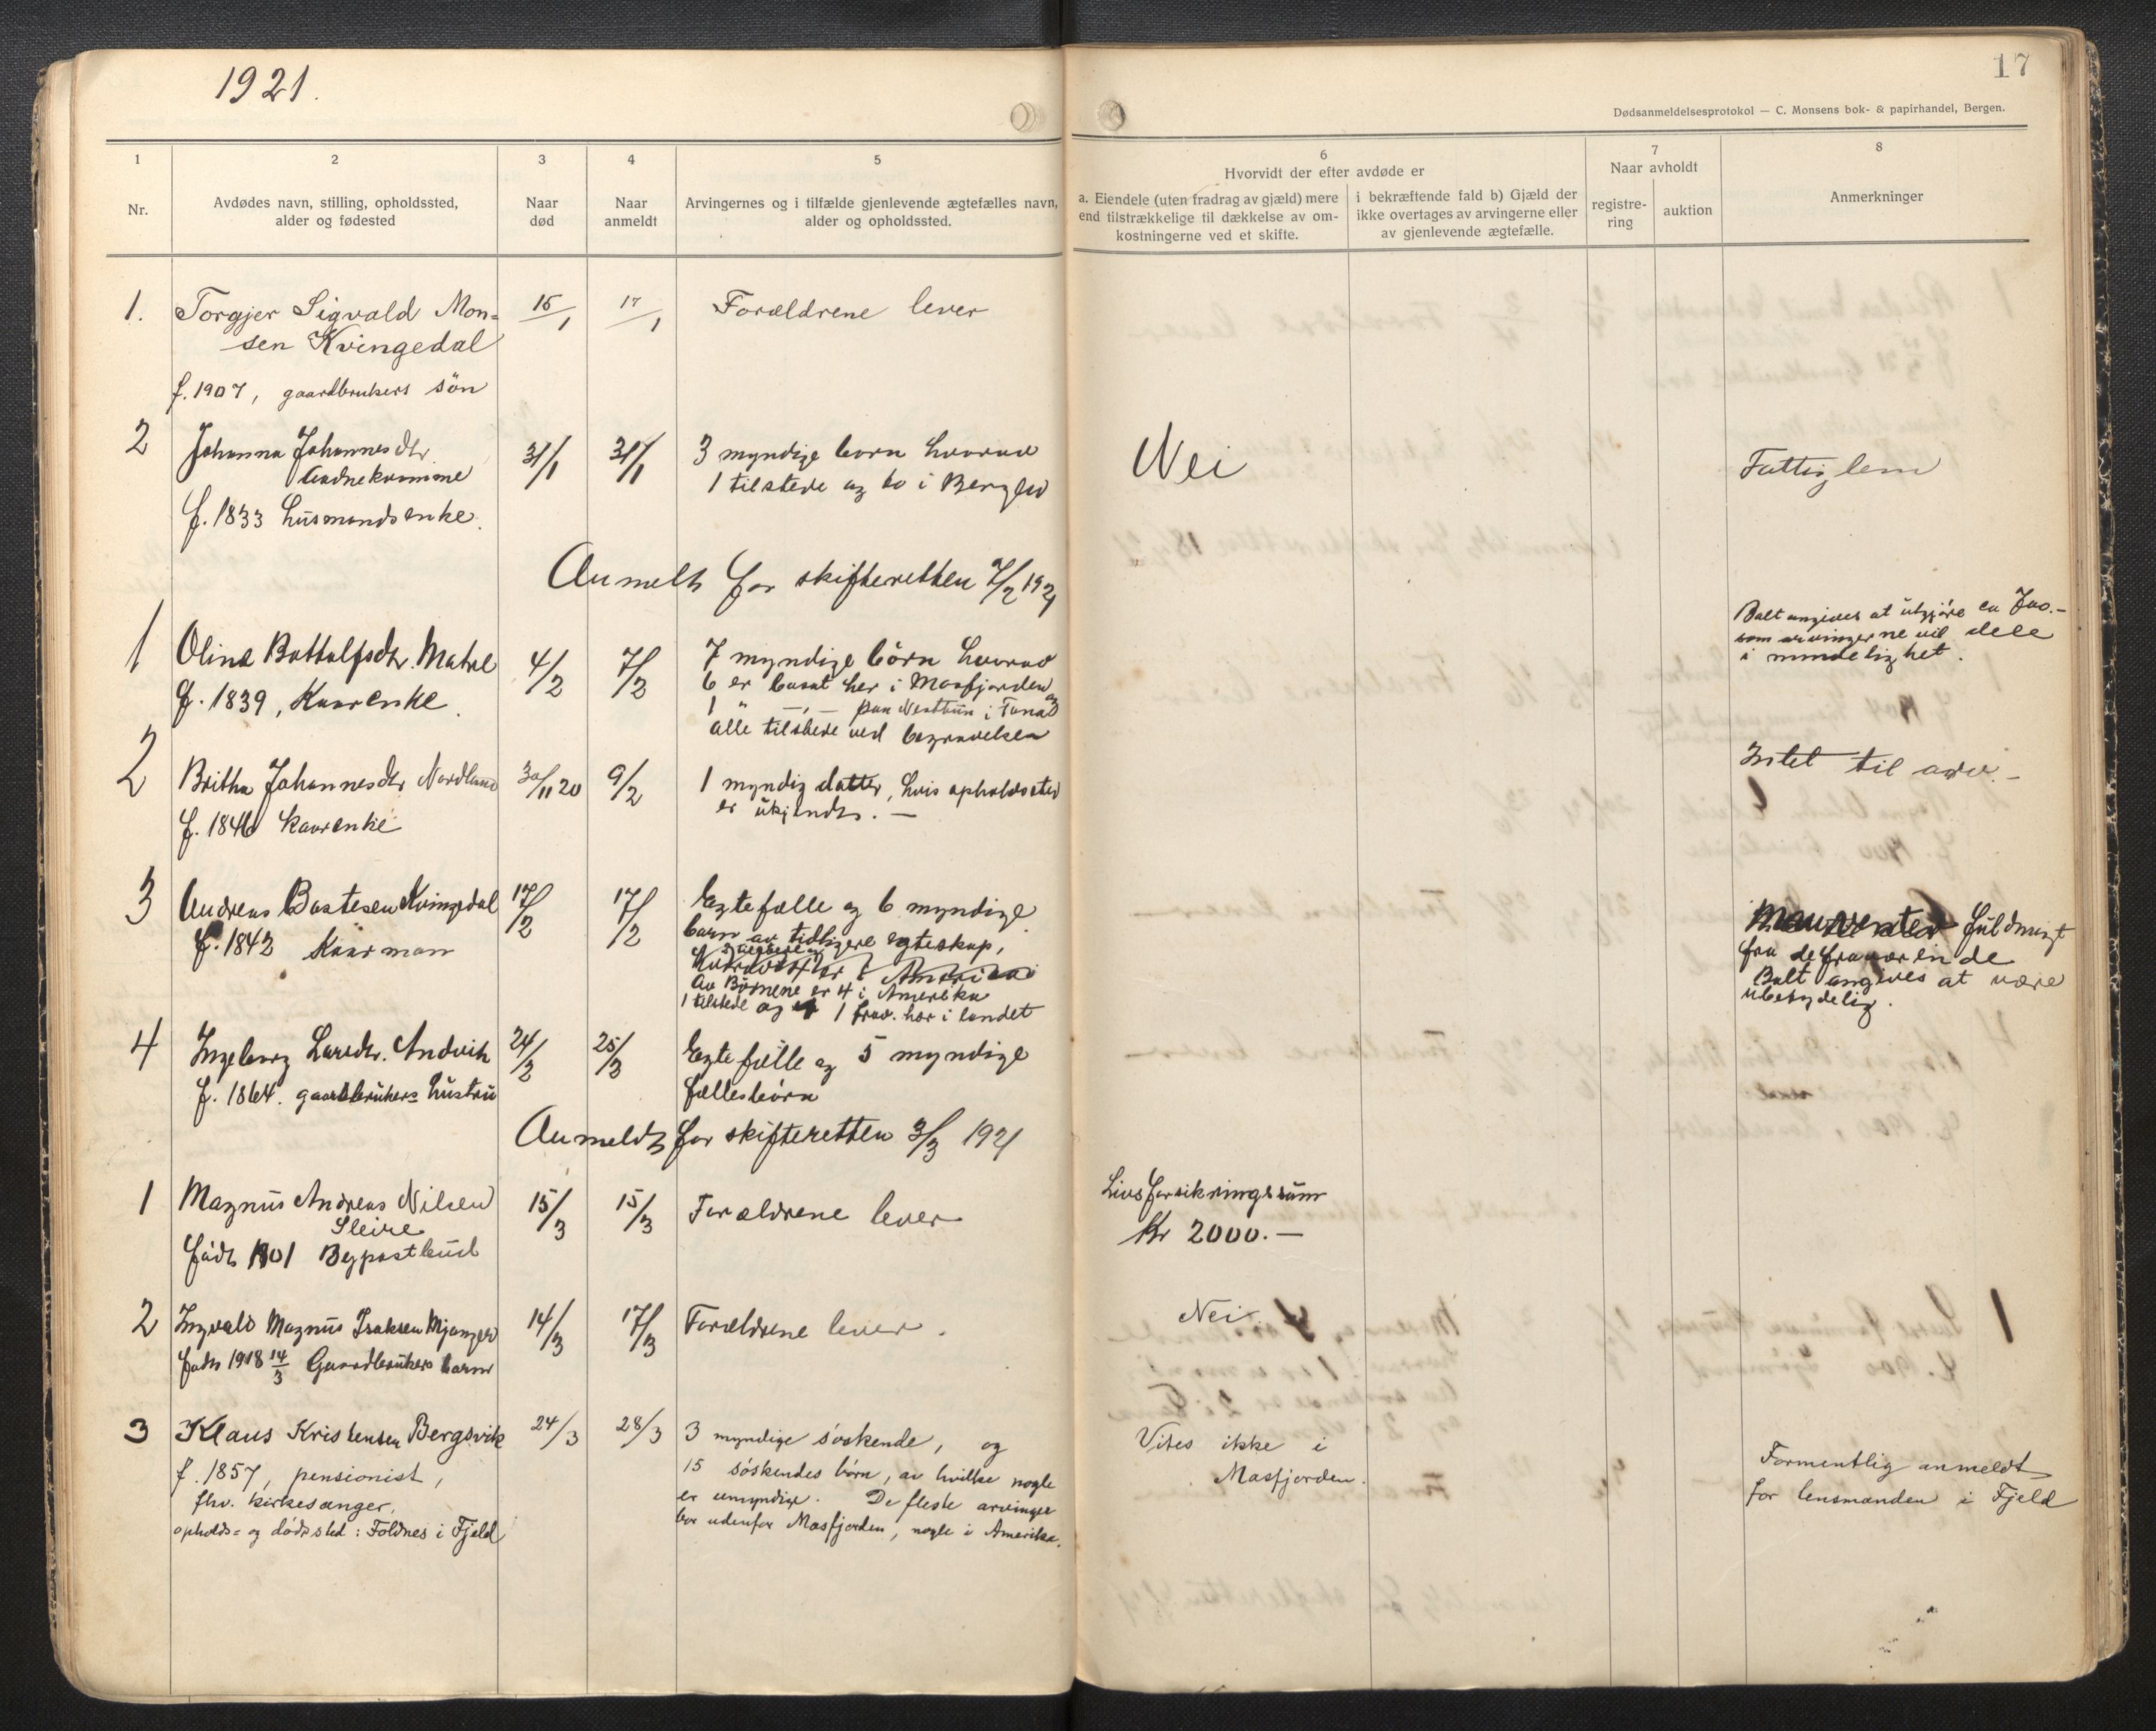 1921.
17
Dødsanmeldelsesprotokol — C. Monsens bok- & papirhandel, Bergen.
1
Nr.
2
Avdødes navn, stilling, opholdssted,
alder og fødested
3
Naar
død
4
Naar
anmeldt
5
Arvingernes og i tilfælde gjenlevende ægtefælles navn,
alder og opholdssted.
6
Hvorvidt der efter avdøde er
a. Eiendele (uten fradrag av gjæld) mere
end tilstrækkelige til dækkelse av om-
kostningerne ved et skifte.
i bekræftende fald b) Gjæld der
ikke overtages av arvingerne eller
av gjenlevende ægtefælle.
7
Naar avholdt
registre-
ring
auktion
8
Anmerkninger
1. Torgjer Sigvald Mon=
sen Kvingedal
f. 1907, gaardbrukers sön
15/1
17/1
Forældrene lever
2 Johanna Johannesdtr.
Andnekvamme
f. 1833 husmandsenke.
31/1
31/1
3 myndige born hvorav
1 tilstede og to i Bergen
Nei
Fattiglem
Anmeldt for skifteretten 7/2 1921
1 Olina Bottolfsdtr. Matre
f. 1839, Kaarenke.
4/2
7/2
7 myndige börn hvorav
6 er bosat her i Masfjorden og
1 " —,— paa Nesttun i Fana
alle tilstede ved begravelsen
Boet angives at utgjöre ca 700.-
som arvingerne vil dele
i mindelighet.
2 Britha Johannesdtr Nordland
f. 1846 kaarenke
30/11 20
9/2
1 myndig datter, hvis opholdssted
er ukjendt. —
Intet til arv. -
3 Andreas Bastesen Kvingedal
f. 1842 Kaarman
17/2
17/2
Egtefælle og 6 myndige
barn av tidligere egteskap,
Av Børnene er 4 i Amerika
1 tilstede og 1 frav. her i landet
fuldmagt
fra de fraværende
Boet angives at være
ubetydelig.
4 Ingeborg Larsdtr. Andvik
f. 1864. gaardbrukers hustru
24/2
25/2
Egtefælle og 5 myndige
fællesbörn
Anmeldt for skifteretten 3/3 1921
1 Magnus Andreas Nilsen
Sleire
födt 1901 Bypostbud
15/3
15/3
Forældrene lever
Livsforsikringssum
Kr 2000.—
2 Ingvald Magnus Isaksen Mjanger
födt 1918 14/3 Gaardbrukers barn
14/3
17/3
Forældrene lever.
Nei.
3 Klaus Kristensen Bergsvik
f. 1857, pensionist,
fhv. kirkesanger.
opholds= og dödssted: Foldnes i Fjeld
24/3
28/3
3 myndige söskende, og
15 söskendes börn, av hvilke nogle
er umyndige. De fleste arvinger
bor udenfor Masfjorden, nogle i Amerika.
Vites ikke i
Masfjorden.
Formentlig anmeldt
for lensmanden i Fjeld